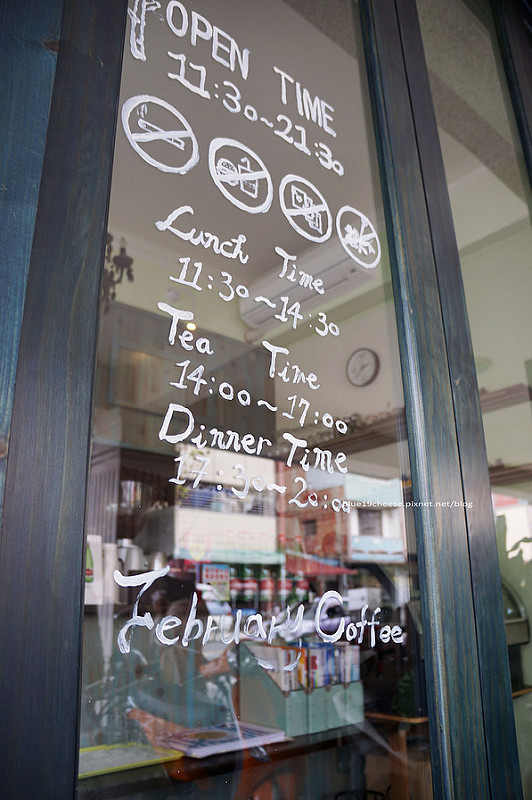 OPEN TIME
11:30~21:30
Lunch Time
11:30~14:30
Tea Time
14:00~17:00
Dinner Time
17:30~20:00
blue19cheese.pixnet.net/blog
February Coffee